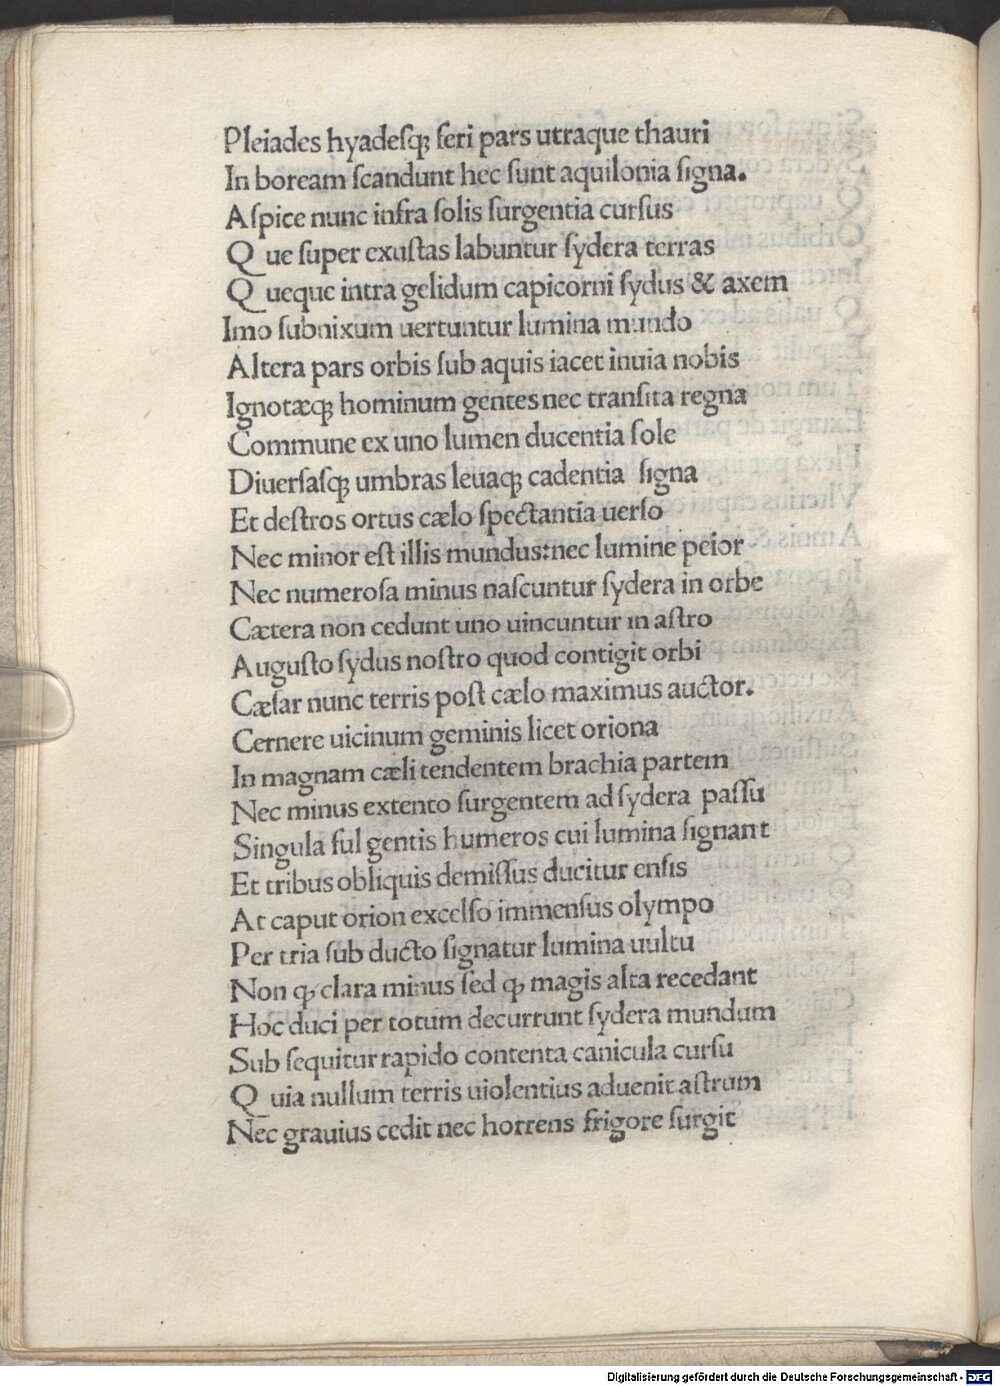 Pleiades hyadeſqꝫ feri pars utraque thauri
In boream ſcandunt hec ſunt aquilonia ſigna.
Aſpice nunc infra ſolis ſurgentia curſus
Q ue ſuper exuſtas labuntur ſydera terras
Q ueque intra gelidum capicorni ſydus & axem
Imo ſubnixum uertuntur lumina mundo
Altera pars orbis ſub aquis iacet inuia nobis
Ignotæqꝫ hominum gentes nec tranſita regna
Commune ex uno lumen ducentia ſole
Diuerſaſqꝫ umbras leuaqꝫ cadentia ſigna
Et deſtros ortus cælo ſpectantia uerſo
Nec minor eſt illis mundus:nec lumine peior
Nec numeroſa minus naſcuntur ſydera in orbe
Cætera non cedunt uno uincuntur in aſtro
Auguſto ſydus noſtro quod contigit orbi
Cæſar nunc terris poſt cælo maximus auctor.
Cernere uicinum geminis licet oriona
In magnam cæli tendentem brachia partem
Nec minus extento ſurgentem ad ſydera paſſu
Singula ful gentis humeros cui lumina ſignant
Et tribus obliquis demiſſus ducitur enſis
At caput orion excelſo immenſus olympo
Per tria ſub ducto ſignatur lumina uultu
Non ꝙ clara minus ſed ꝙ magis alta recedant
Hoc duci per totum decurrunt ſydera mundum
Sub ſequitur rapido contenta canicula curſu
Q uia nullum terris uiolentius aduenit aſtrum
Nec grauius cedit nec horrens frigore ſurgit
Digitalisierung gefördert durch die Deutsche Forschungsgemeinschaft - DFG